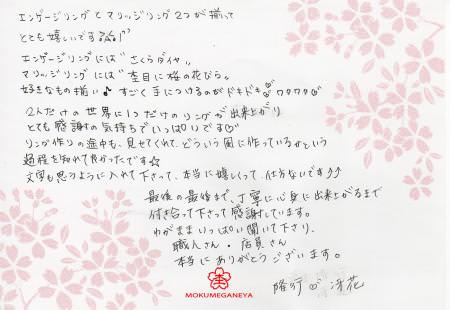 エンゲージリングとマリッジリング2つが揃って
とても嬉しいです
エンゲージリングには"さくらダイヤ"
マリッジリングには"杢目に桜の花びら"
好きなもの揃い♪ すごく手につけるのがドキドキ♡ワクワク♡
2人だけの世界に1つだけのリングが出来上がり
とても感謝の気持ちでいっぱいです♡
リング作りの途中も、見せてくれて、どういう風に作っているかという
過程を知れて良かったです☆
文字も思うように入れて下さって、本当に嬉しくって仕方ないです♪♪
最後の最後まで、丁寧に心身に出来上がるまで
付き合って下さって感謝しています。
わがままいっぱい聞いて下さり、
職人さん・店員さん
本当にありがとうございます。
隆行 ♡ 冴花
MOKUMEGANEYA